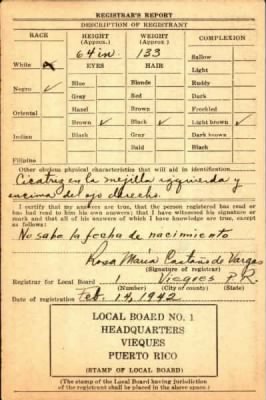 REGISTRAR'S REPORT
DESCRIPTION OF REGISTRANT
RACE
HEIGHT (Approx.)
WEIGHT (Approx.)
COMPLEXION
64 in.
133
Sallow
White
EYES
HAIR
Light
Blue
Blonde
Ruddy
Negro
Gray
Red
Dark
Hazel
Brown
Freckled
Oriental
Brown
Black
Light brown
Black
Gray
Dark brown
Indian
Bald
Black
Filipino
Other obvious physical characteristics that will aid in identification
Cicatriz en la mejilla izquierda y
encima del ojo derecho.
I certify that my answers are true; that the person registered has read or
has had read to him his own answers; that I have witnessed his signature
or mark and that all of his answers of which I have knowledge are true, except
as follows:
No sabe la fecha de nacimiento
Rosa María Castaño de Vargas
(Signature of registrar)
Registrar for Local Board 1 Vieques P.R.
(Number) (City or county) (State)
Date of registration Feb. 14, 1942
LOCAL BOARD NO. 1
HEADQUARTERS
VIEQUES
PUERTO RICO
(STAMP OF LOCAL BOARD)
(The stamp of the Local Board having jurisdiction
of the registrant shall be placed in the above space.)